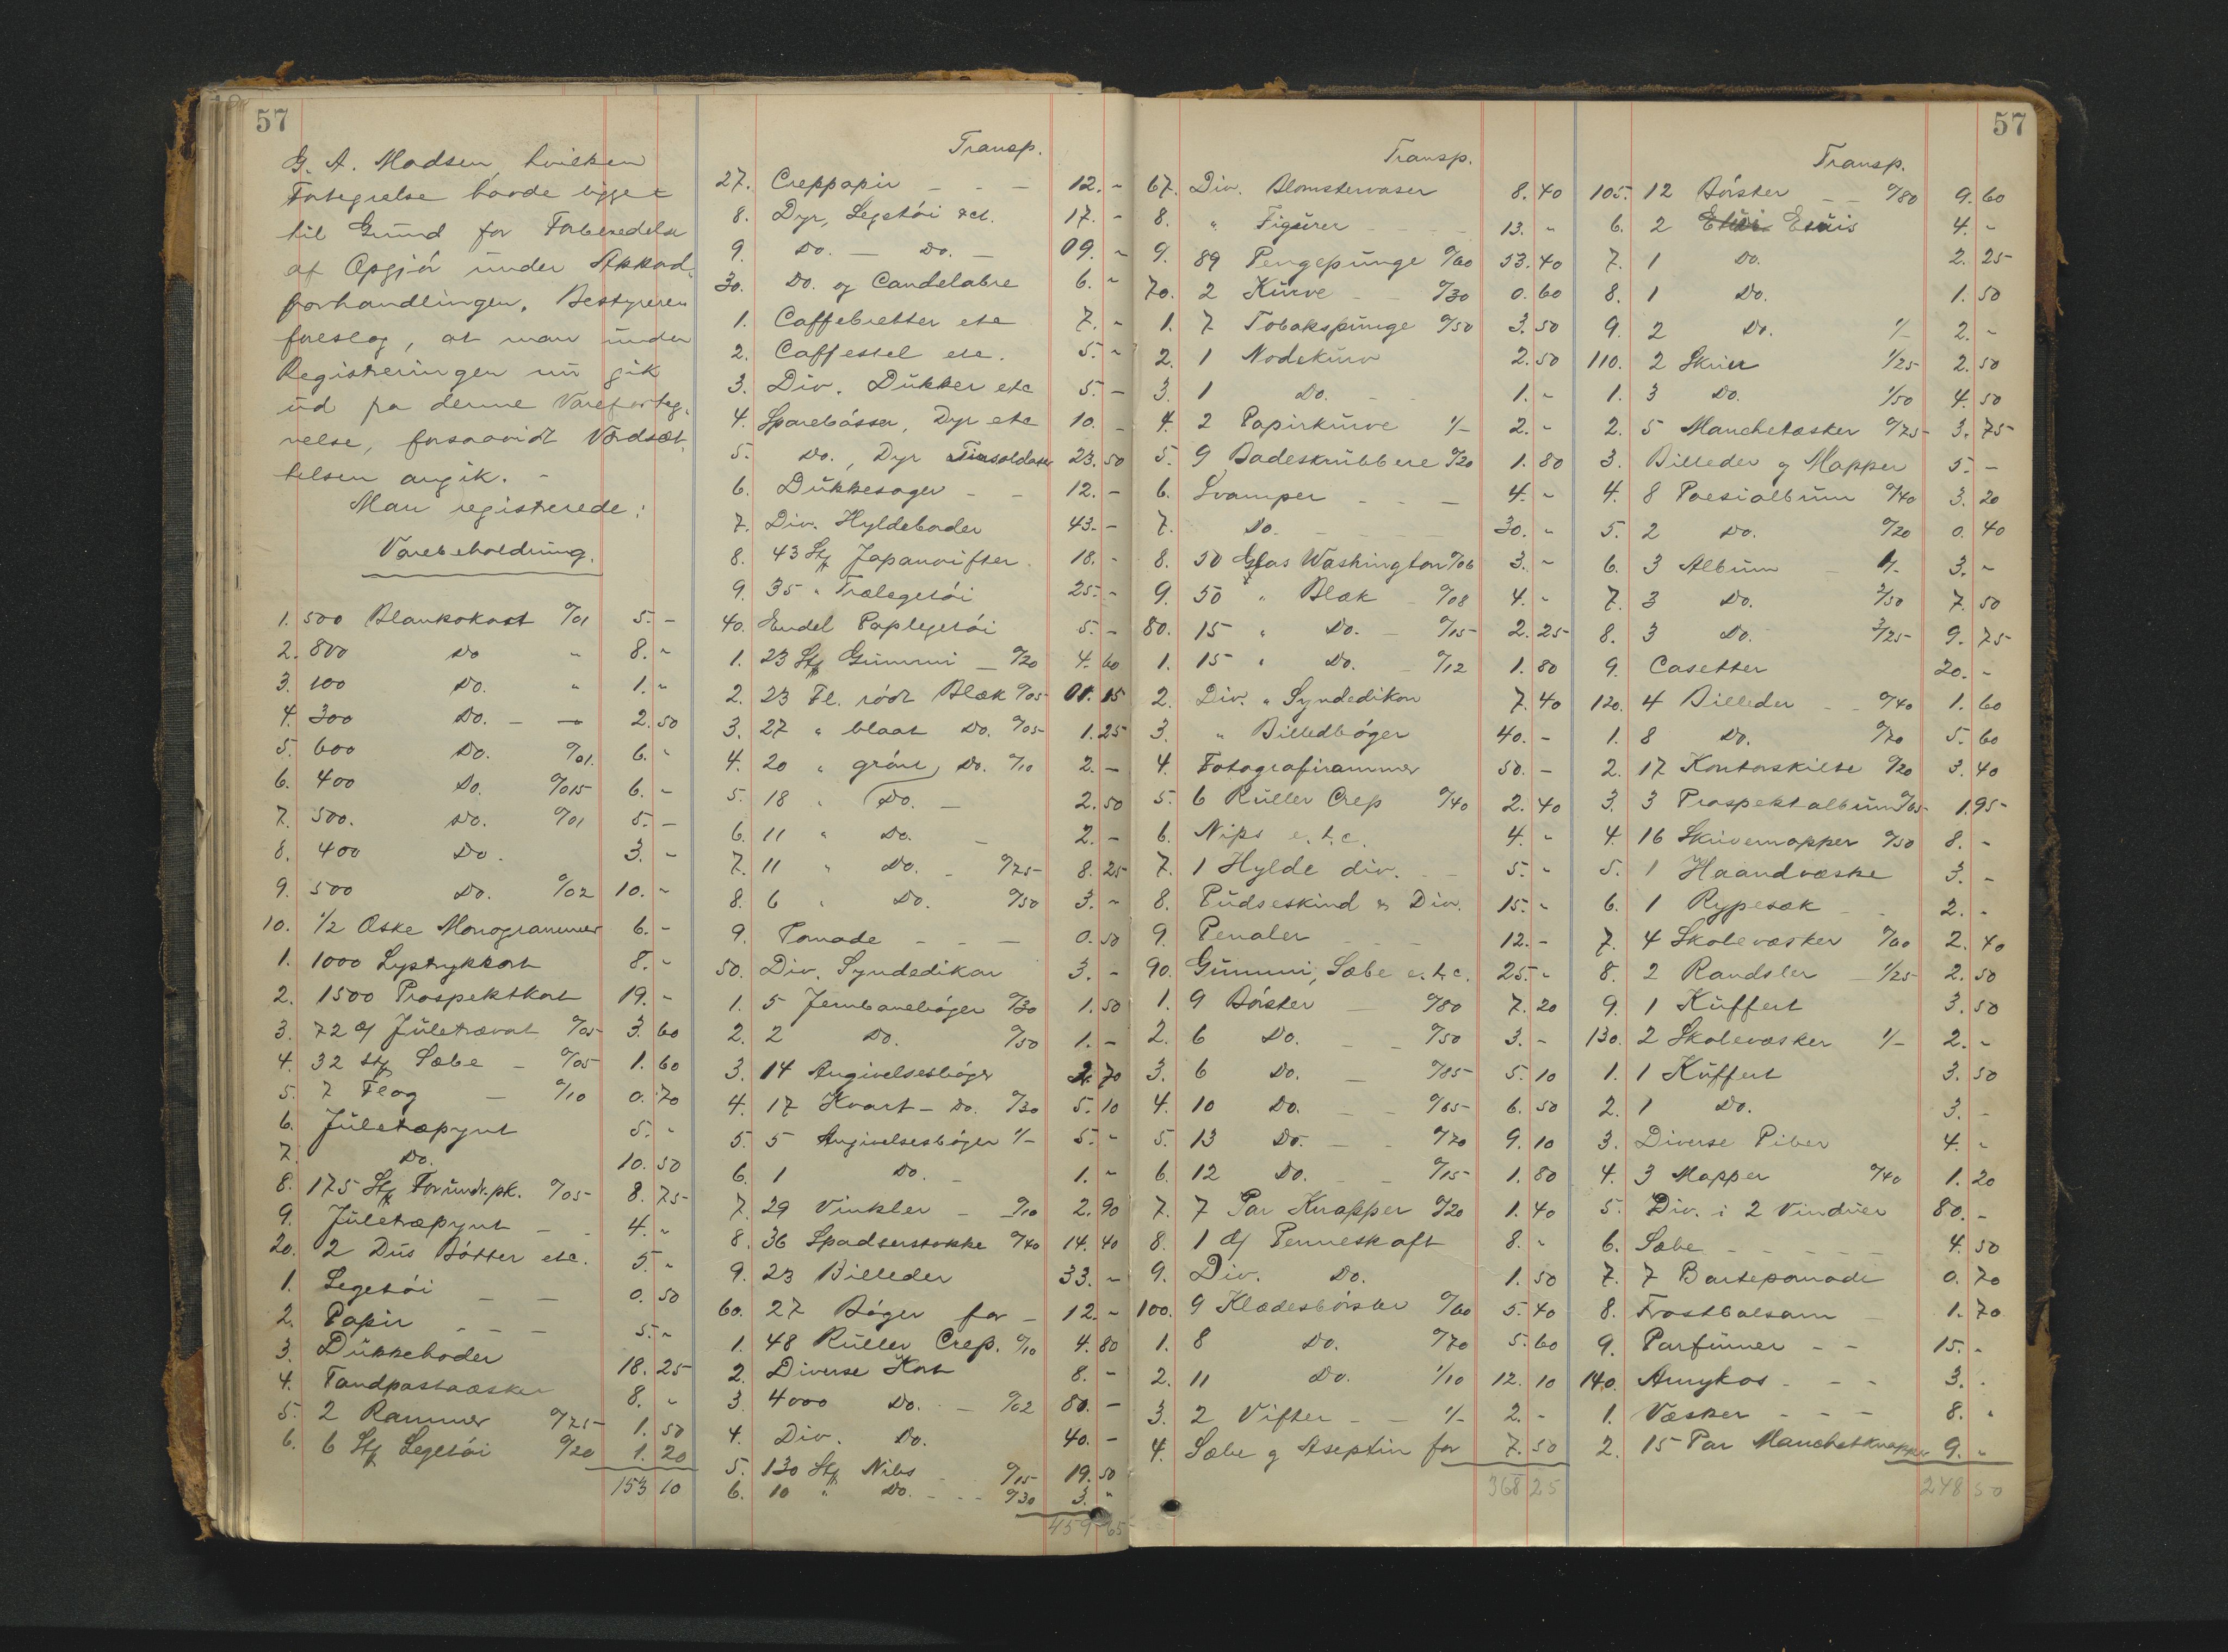 57
G. A. Madsen, hvilken
Fortegnelse havde ligget
til Grund for Forberedelse
af Opgjör under Akkord-
forhandlingen. Bestyreren
foreslog, at man under
Registreringen nu gik
ud fra denne Varefor teg-
nelse, forsaavidt Værdsæt-
telsen angik. -
Man registrerede:
Varebeholdning.
1. 500 Blankokort %01 5. -
2. 800 Do " 8. "
3. 100 Do. " 1. "
4. 300 Do. - - 2.50
5. 600 Do. %01. 6. "
6. 400 Do. %015 6. -
7. 500. Do. %01 5. -
8. 400 Do. 3. -
9. 500 Do. %02 10. "
10. 1/2 Æske Monogrammer 6. -
1. 1000 Lystrykkort 8. "
2. 1500 Prospektkort 19. -
3. 72 Juletrævat %05 3.60
4. 32 Stk Sæbe - %05 1.60
5. 7 Flag - %10 0.70
6. Juletræpynt 5. "
7. Do. 10.50
8. 175 Stk Forundr.pk. %05 8.75
9. Juletræpynt - 4. "
20. 2 Dus Bötter etc. 5. "
1. Legetöi - - 0.50
2. Papir - - - 5. "
3. Dukkehoder 18.25
4. Tandpastaæsker 8. "
5. 2 Rammer %75 1.50
6. 6 Stk Legetöi %20 1.20
153 10
Transp.
27. Creppapir - - - 12. "
8. Dyr, Legetöi &ct. 17. -
9. Do. - Do. - 09. "
30. Do. og Candelabre 6. "
1. Caffebretter etc 7. "
2. Caffestel etc. 5. "
3. Div. Dukker etc 5. -
4. Sparebösser, Dyr etc 10. -
5. Do., Dyr Tinsoldater 23.50
6. Dukkesager - - 12. -
7. Div. Hyldeborder 43. -
8. 43 Stk Japanvifter 18. -
9. 35 " Trælegetöi 25. "
40. Endel Paplegetöi 5. -
1. 23 Stk Gummi - %20 4.60
2. 23 Fl. rödt Blæk %05 01.15
3. 27 " blaat Do. %05 1.25
4. 20 " grönt, Do. %10 2. -
5. 18 " Do. - 2.50
6. 11 " Do. - 2. -
7. 11 " Do. - %75 8.25
8. 6 " Do. %50 3. "
9. Pomade - - - 0.50
50. Div. Syndedikon 3. -
1. 5 Jernbanebøger %30 1.50
2. 2 Do. %50 1. -
3. 14 Angivelsesbøger 2.70
4. 17 Kvart - Do. %30 5.10
5. 5 Angivelsesbøger 1/- 5. "
6. 1 Do. - 1. "
7. 29 Vinkler - %10 2.90
8. 36 Spadserstokke %40 14.40
9. 23 Billeder 33. "
60. 27 Bøger for - 12. "
1. 48 Ruller Crep. %10 4.80
2. Diverse Kort 8. -
3. 4000 Do. - %02 80. -
4. Div. Do. 40. -
5. 130 Stk Nibs %15 19.50
6. 10 " Do. - - %30 3. "
459 65
57
Transp.
67. Div. Blomstervaser 8.40
8. " Figurer - - - 13. "
9. 89 Pengepunge %60 53.40
70. 2 Kurve - - %30 0.60
1. 7 Tobakspunge %50 3.50
2. 1 Nodekurv 2.50
3. 1 Do. - 1. "
4. 2 Papirkurve 1/- 2. "
5. 9 Badeskrubbere %20 1.80
6. Svamper - - - 4. "
7. Do. - - - 30. "
8. 50 Glas Washington %06 3. "
9. 50 " Blæk - %08 4. "
80. 15 " Do. - %15 2.25
1. 15 " Do. - %12 1.80
2. Div. " Syndedikon 7.40
3. " Billedbøger 40. -
4. Fotografirammer 50. -
5. 6 Ruller Crep %40 2.40
6. Nips e.t.c. 4. "
7. 1 Hylde div. - - 5. "
8. Pudseskind & Div. 15. "
9. Penaler - - - 12. -
90. Gummi, Sæbe e.t.c. 25. "
1. 9 Börster - %80 7.20
2. 6 Do. - - %50 3. -
3. 6 Do. - %85 5.10
4. 10 Do. - - %65 6.50
5. 13 Do. - - %70 9.10
6. 12 Do. - - %15 1.80
7. 7 Par Knapper %20 1.40
8. 1 Penneskaft 8. "
9. Div. Do. 1.50
100. 9 Klædesbörster %60 5.40
1. 8 Do. %70 5.60
2. 11 Do. 1/10 12.10
3. 2 Vifter - - 1/- 2. -
4. Sæbe og Aseptin for 7.50
368 25
Transp.
105. 12 Börster - - %80 9.60
6. 2 Etuis 4. -
7. 1 Do. 2.25
8. 1 Do. 1.50
9. 2 Do. 1/- 2. -
110. 2 Skrin 1/25 2.50
1. 3 Do. 1/50 4.50
2. 5 Manchetæsker %75 3.75
3. Billeder og Mapper 5. -
4. 8 Poesialbum %40 3.20
5. 2 Do. %20 0.40
6. 3 Album - 1/- 3. "
7. 3 Do. 2/50 7.50
8. 3 Do. 3/25 9.75
9. Casetter 20. -
120. 4 Billeder - - %40 1.60
1. 8 Do. %70 5.60
2. 17 Kontorskilte %20 3.40
3. 3 Prospektalbum %65 1.95
4. 16 Skrivemapper %50 8. -
5. 1 Haandvæske 3. -
6. 1 Rypesæk - - 2. -
7. 4 Skolevæsker %60 2.40
8. 2 Randsler - 1/25 2.50
9. 1 Kuffert 3.50
130. 2 Skolevæsker 1/- 2. "
1. 1 Kuffert 3.50
2. 1 Do. 3. -
3. Diverse Piber 4. "
4. 3 Mapper %40 1.20
5. Div. i 2 Vinduer 80. -
6. Sæbe - - - - - 4.50
7. 7 Bartepomade 0.70
8. Frostbalsam - 1.70
9. Parfumer - - 15. -
140. Amykos - - - 3. "
1. Væsker - - - 8. "
2. 15 Par Manchetknapper 9. "
248 50